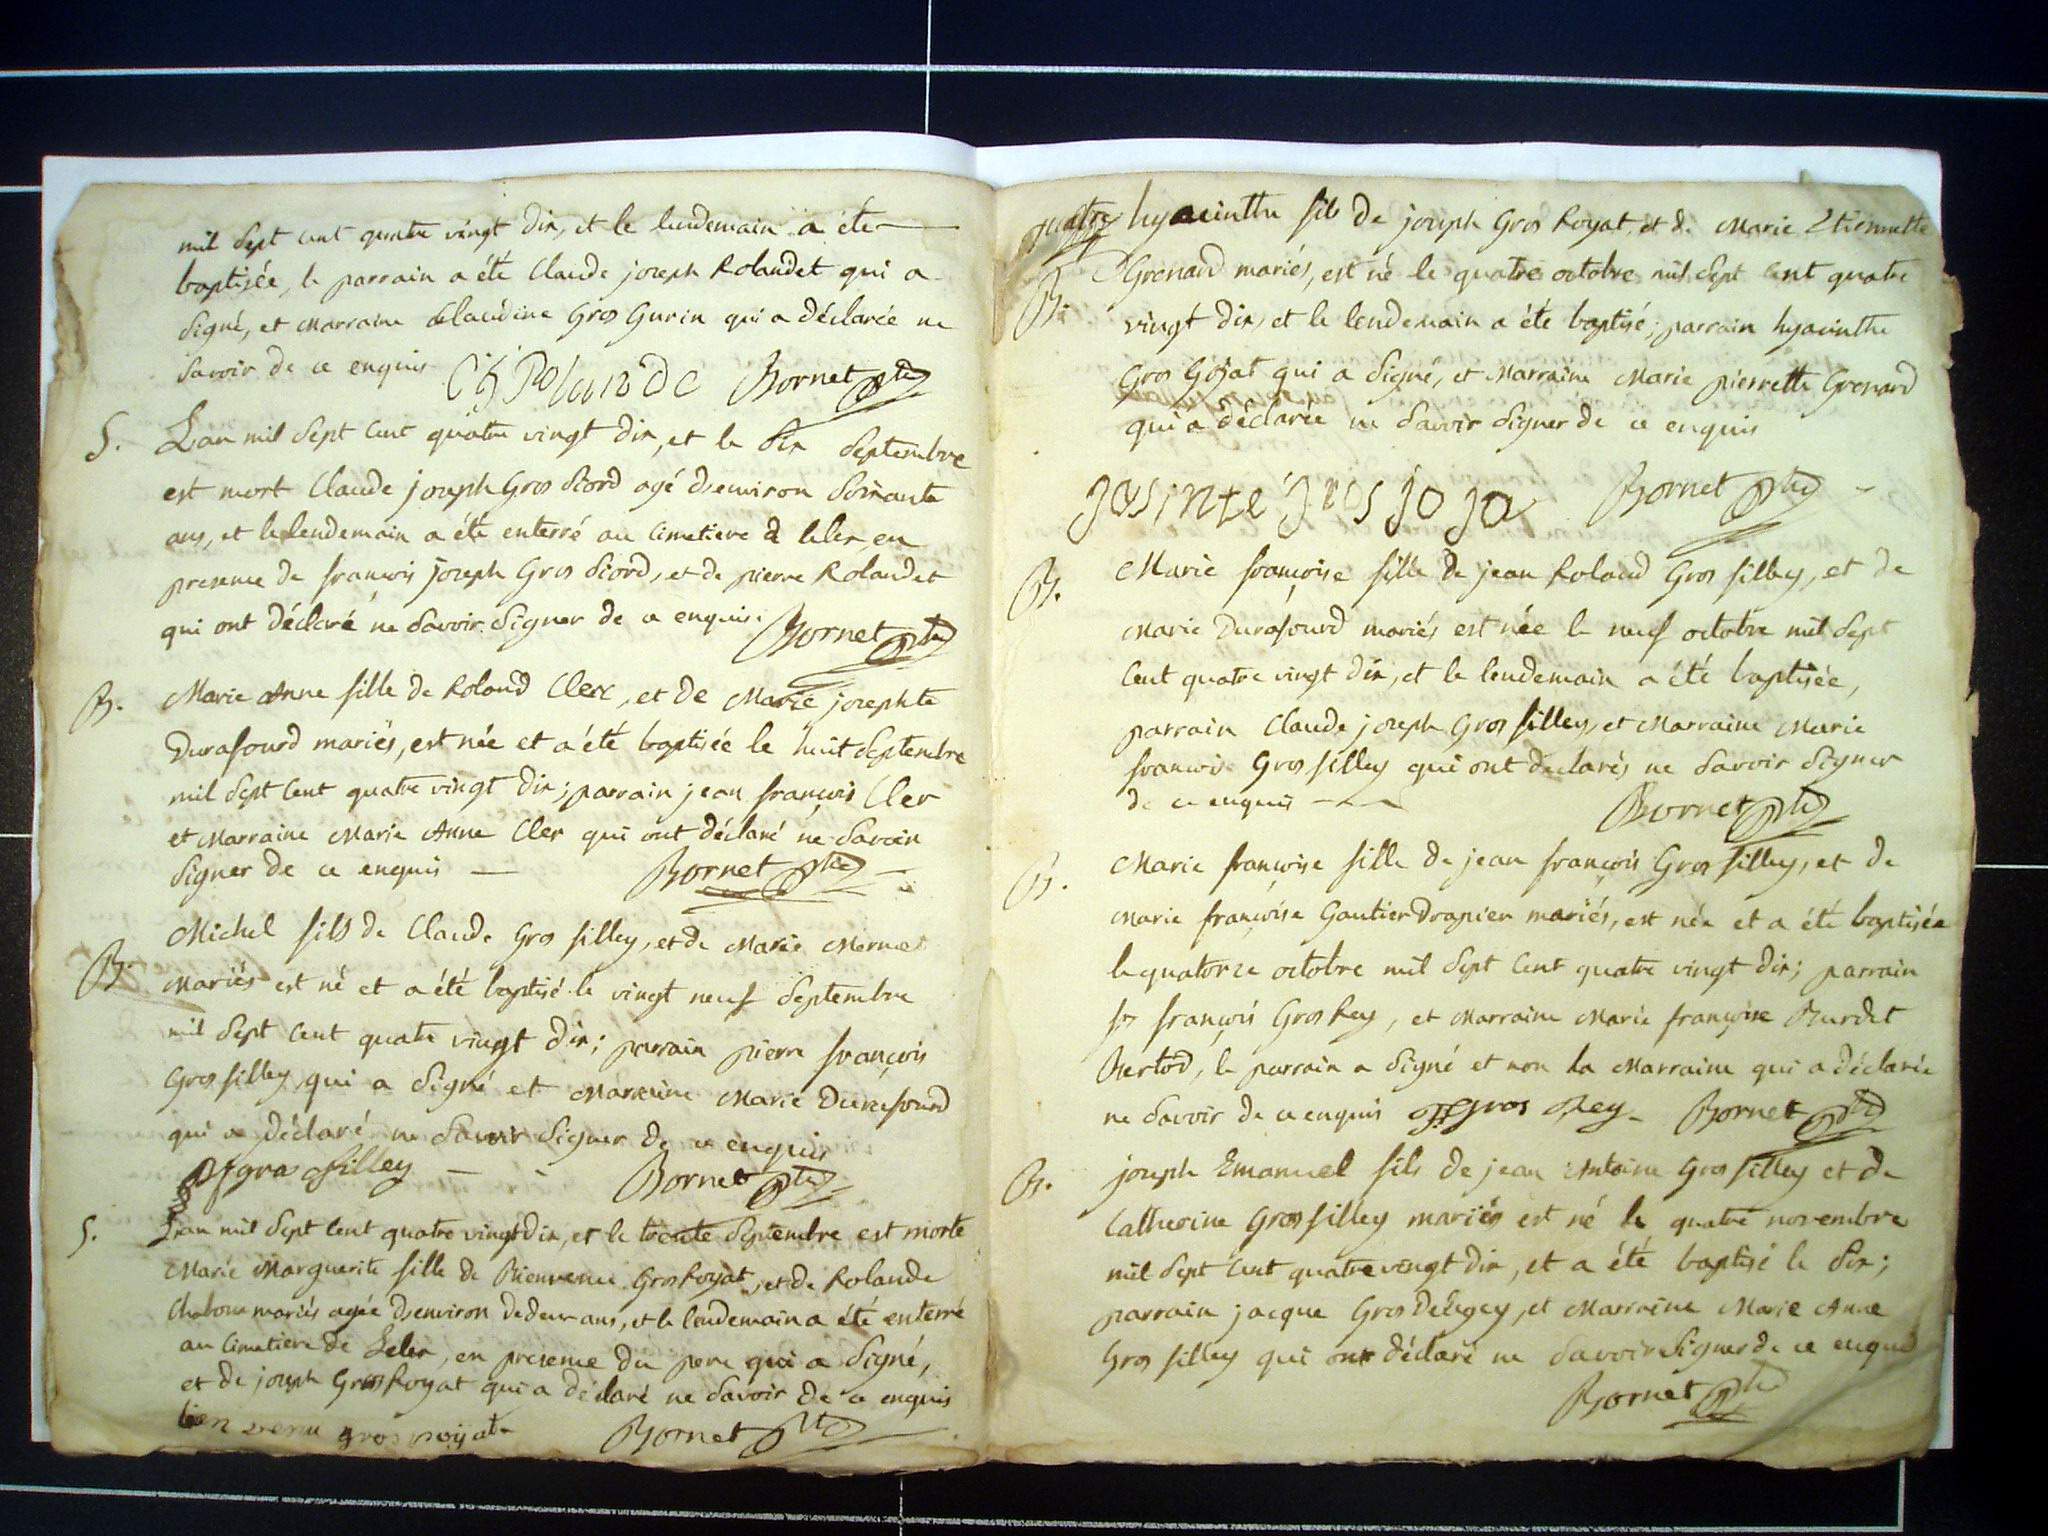 mil sept cent quatre vingt dix, et le lendemain a été
baptisée, le parrain a été Claude joseph Rolandet qui a
signé, et Marraine Claudine Gros Gurin qui a déclarée ne
savoir de ce enquis Bornet ptre
S. L'an mil sept cent quatre vingt dix, et le six septembre
est mort Claude joseph Gros Siord agé d'environ soixante
ans, et le lendemain a été enterré au cimetiere de Lelex en
presence de françois joseph Gros Siord, et de pierre Rolandet
qui ont déclaré ne savoir signer de ce enquis. Bornet ptre
B. Marie Anne fille de Roland Clerc, et de Marie josephte
Durafourd mariés, est née et a été baptisée le huit septembre
mil sept cent quatre vingt dix; parrain jean françois Cler
et Marraine Marie Anne Cler qui ont déclaré ne savoir
signer de ce enquis Bornet ptre
Michel fils de Claude Gros filley, et de Marie Mermet
B. Mariés est né et a été baptisé le vingt neuf septembre
mil sept cent quatre vingt dix; parrain pierre françois
Gros filley qui a signé et Marraine Marie Durafourd
qui a déclaré ne savoir signer de ce enquis
pf gros filley Bornet ptre
S. L'an mil sept cent quatre vingt dix, et le trente septembre est morte
Marie Marguerite fille de Bienvenu Gros Royat, et de Rolande
mariés agée d'environ de deux ans, et le lendemain a été enterré
au cimetiere de Lelex, en presence du pere qui a signé,
et de joseph Gros Royat qui a déclaré ne savoir de ce enquis
bien venu gros royat Bornet ptre
quatre hyacinthe fils de joseph Gros Royat, et de Marie Etiennette
B. Grenard mariés, est né le quatre octobre mil sept cent quatre
vingt dix, et le lendemain a été baptisé; parrain hyacinthe
Gros Gojat qui a signé, et Marraine Marie pierrette Grenard
qui a déclarée ne savoir signer de ce enquis
jasinte gros jo ja Bornet ptre
B. Marie françoise fille de jean Roland Gros filley, et de
Marie Durafourd mariés est née le neuf octobre mil sept
cent quatre vingt dix, et le lendemain a été baptisée,
parrain Claude joseph Gros filley, et Marraine Marie
françoise Gros filley qui ont declarés ne savoir signer
de ce enquis Bornet ptre
B. Marie françoise fille de jean françois Gros filley, et de
Marie françoise Gautier Drapier mariés, est née et a été baptisée
le quatorze octobre mil sept cent quatre vingt dix; parrain
françois Gros Rey, et Marraine Marie françoise Burdet
Bertod, le parrain a signé et non la Marraine qui a déclarée
ne savoir de ce enquis gros Rey Bornet ptre
B. joseph Emanuel fils de jean Antoine Gros filley et de
Catherine Gros filley mariés est né le quatre novembre
mil sept cent quatre vingt dix, et a été baptisé le six;
parrain jacque Gros Delegey, et Marraine Marie Anne
Gros filley qui ont déclaré ne savoir signer de ce enquis
Bornet ptre